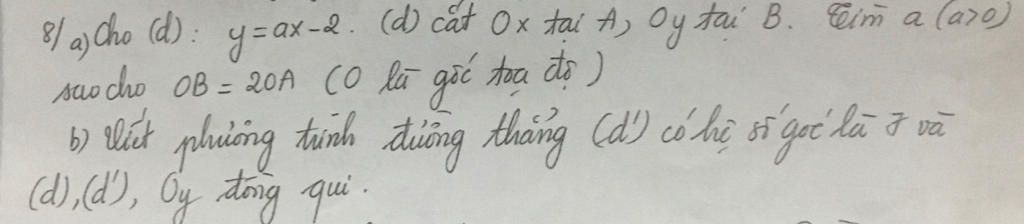 8/ a) Cho (d): y = ax - 2. (d) cắt Ox tại A, Oy tại B. Tìm a (a>0)
sao cho OB = 2OA (O là gốc toạ độ)
b) Viết phương trình đường thẳng (d') có hệ số góc là 7 và
(d), (d'), Oy đồng qui.